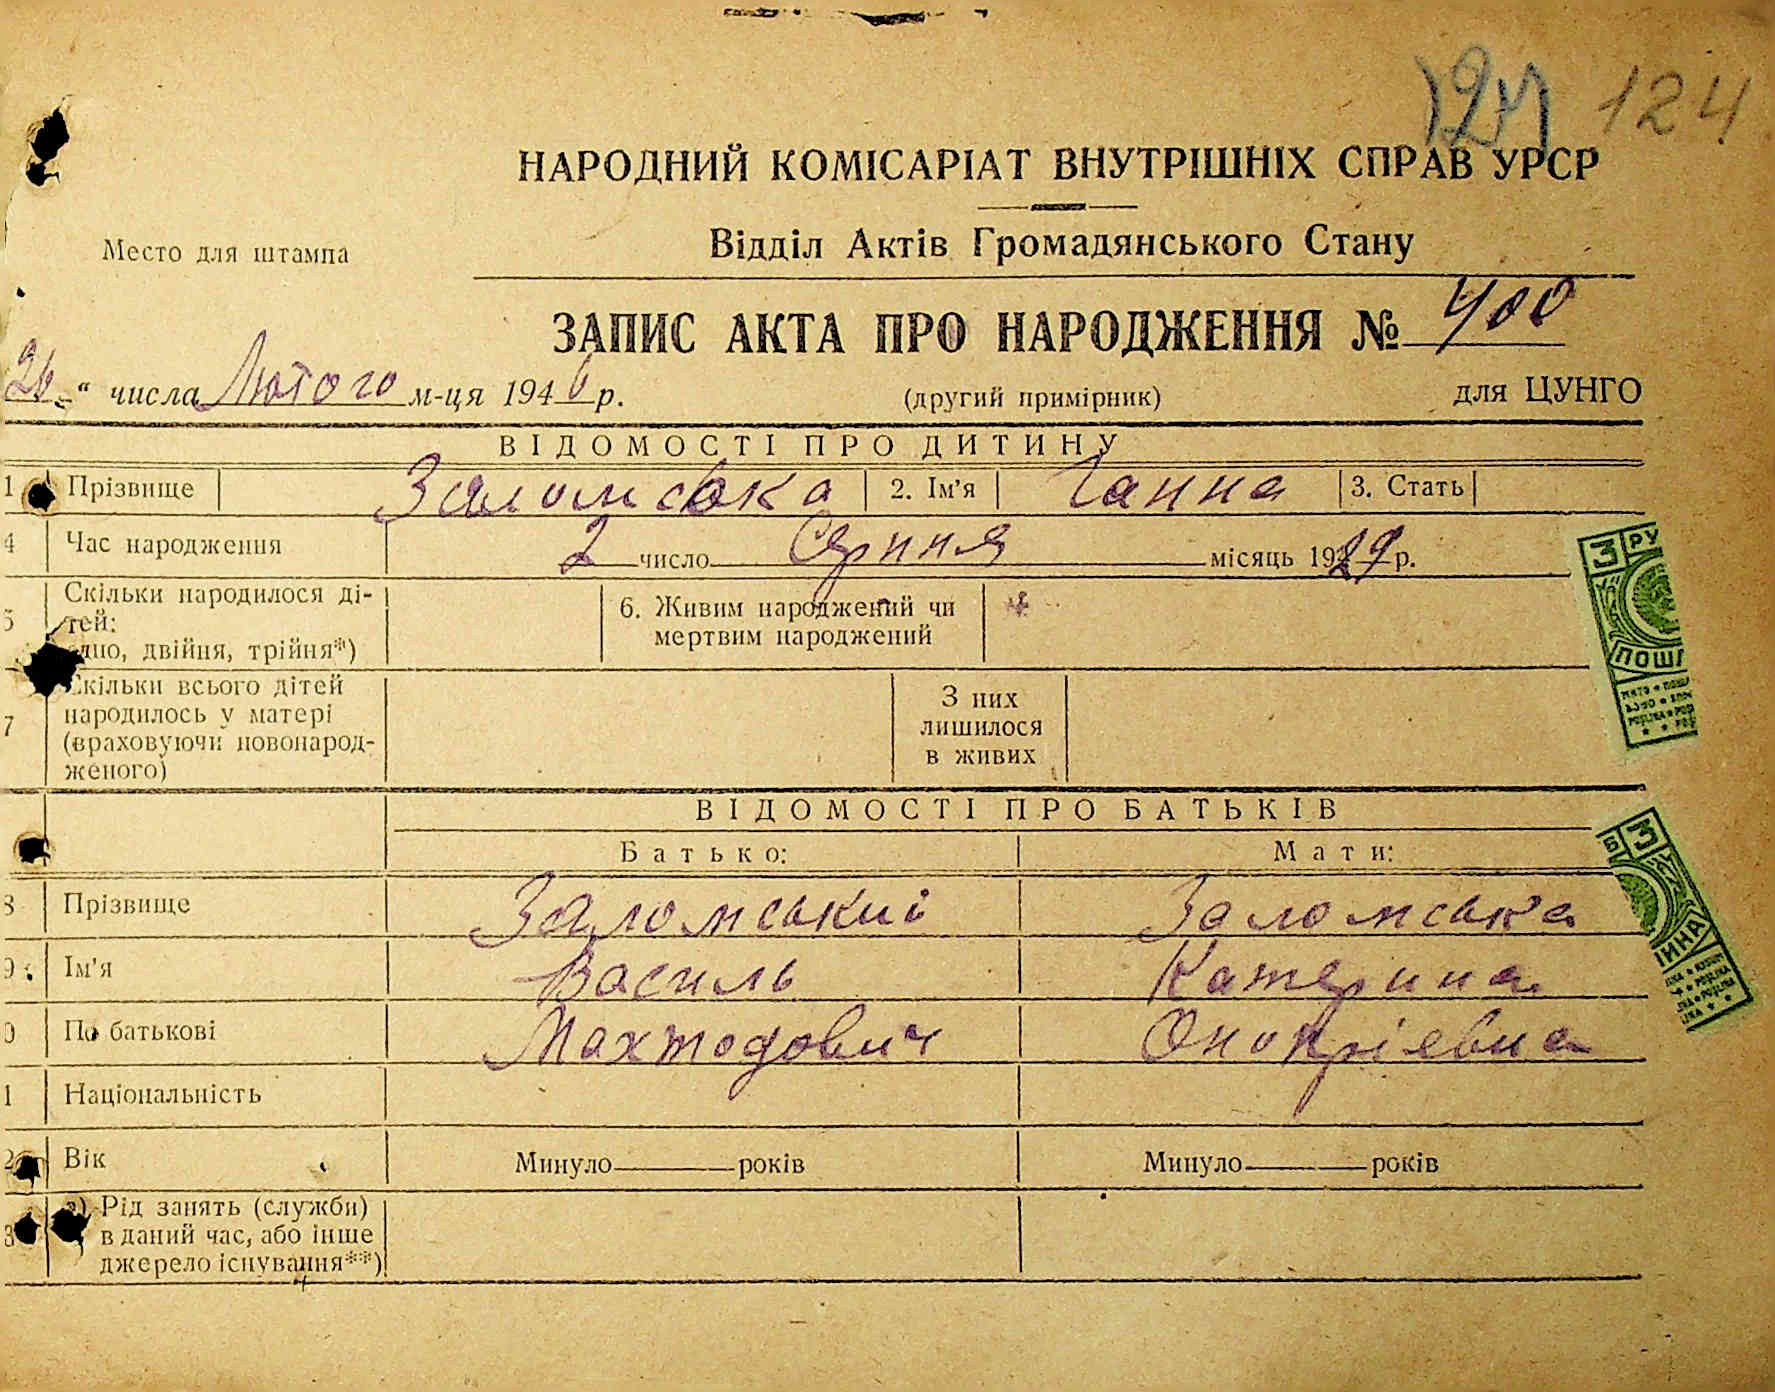 124 124
НАРОДНИЙ КОМІСАРІАТ ВНУТРІШНІХ СПРАВ УРСР
Відділ Актів Громадянського Стану
Место для штампа
ЗАПИС АКТА ПРО НАРОДЖЕННЯ № 400
26 “ числа Лютого м-ця 1946 р. (другий примірник) для ЦУНГО
ВІДОМОСТІ ПРО ДИТИНУ
1 Прізвище Заломська 2. Ім'я Ганна 3. Стать
4 Час народження 2 число Серпня місяць 1929 р.
5 Скільки народилося ді-
тей:
одно, двійня, трійня*)
6. Живим народжений чи
мертвим народжений
7 Скільки всього дітей
народилось у матері
(враховуючи новонарод-
женого)
З них
лишилося
в живих
ВІДОМОСТІ ПРО БАТЬКІВ
Батько: Мати:
8 Прізвище Заломський Заломська
9 Ім'я Василь Катерина
0 По батькові Махтодович Онопріевна
1 Національність
2 Вік Минуло років Минуло років
3 а) Рід занять (служби)
в даний час, або інше
джерело існування**)
3 РУ
ПОШ
Б 3
ИНА